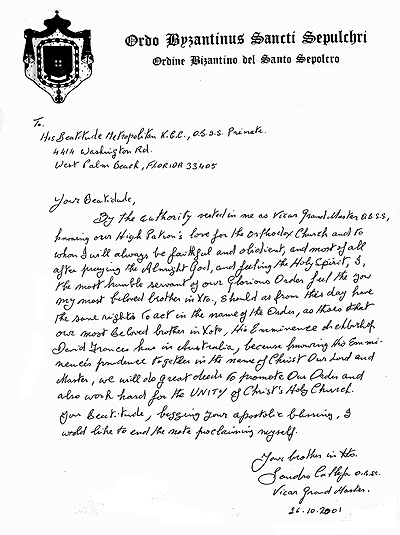 Ordo Byzantinus Sancti Sepulchri
Ordine Bizantino del Santo Sepolcro
To.
His Beatitude Metropolitan K.G.C., O.B.S.S. Primate.
4414 Washington Rd.
West Palm Beach, FLORIDA 33405
Your Beatitude,
By the authority vested in me as Vicar Grand Master O.B.S.S,
knowing our High Patron's love for the Orthodox Church and to
whom I will always be faithful and obidient, and most of all
after praying the Almight God, and feeling the Holy Spirit, I,
the most humble servant of our Glorious Order feel the you
my most beloved brother in Xto, should as from this day have
the same rights to act in the name of the Order, as those that
our most beloved brother in Xsto, His Emminence
David Frances has in Australia, because knowing His Emmi-
nence's prudence together in the name of Christ Our Lord and
Master, we will do great deeds to promote Our Order and
also work hard for the UNITY of Christ's Holy Church.
Your Beatitude, begging your apostolic blessing, I
would like to end the note proclaiming myself.
Your brother in Xto.
Sandro O.B.SS.
Vicar Grand Master.
26.10.2001